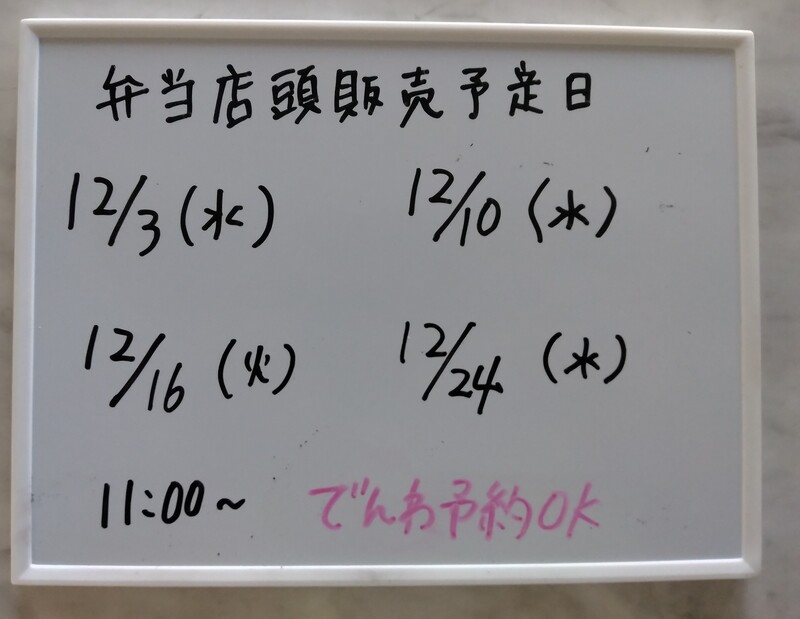 弁当店頭販売予定日
12/3(水) 12/10(水)
12/16(火) 12/24(水)
11:00~ でんわ予約OK